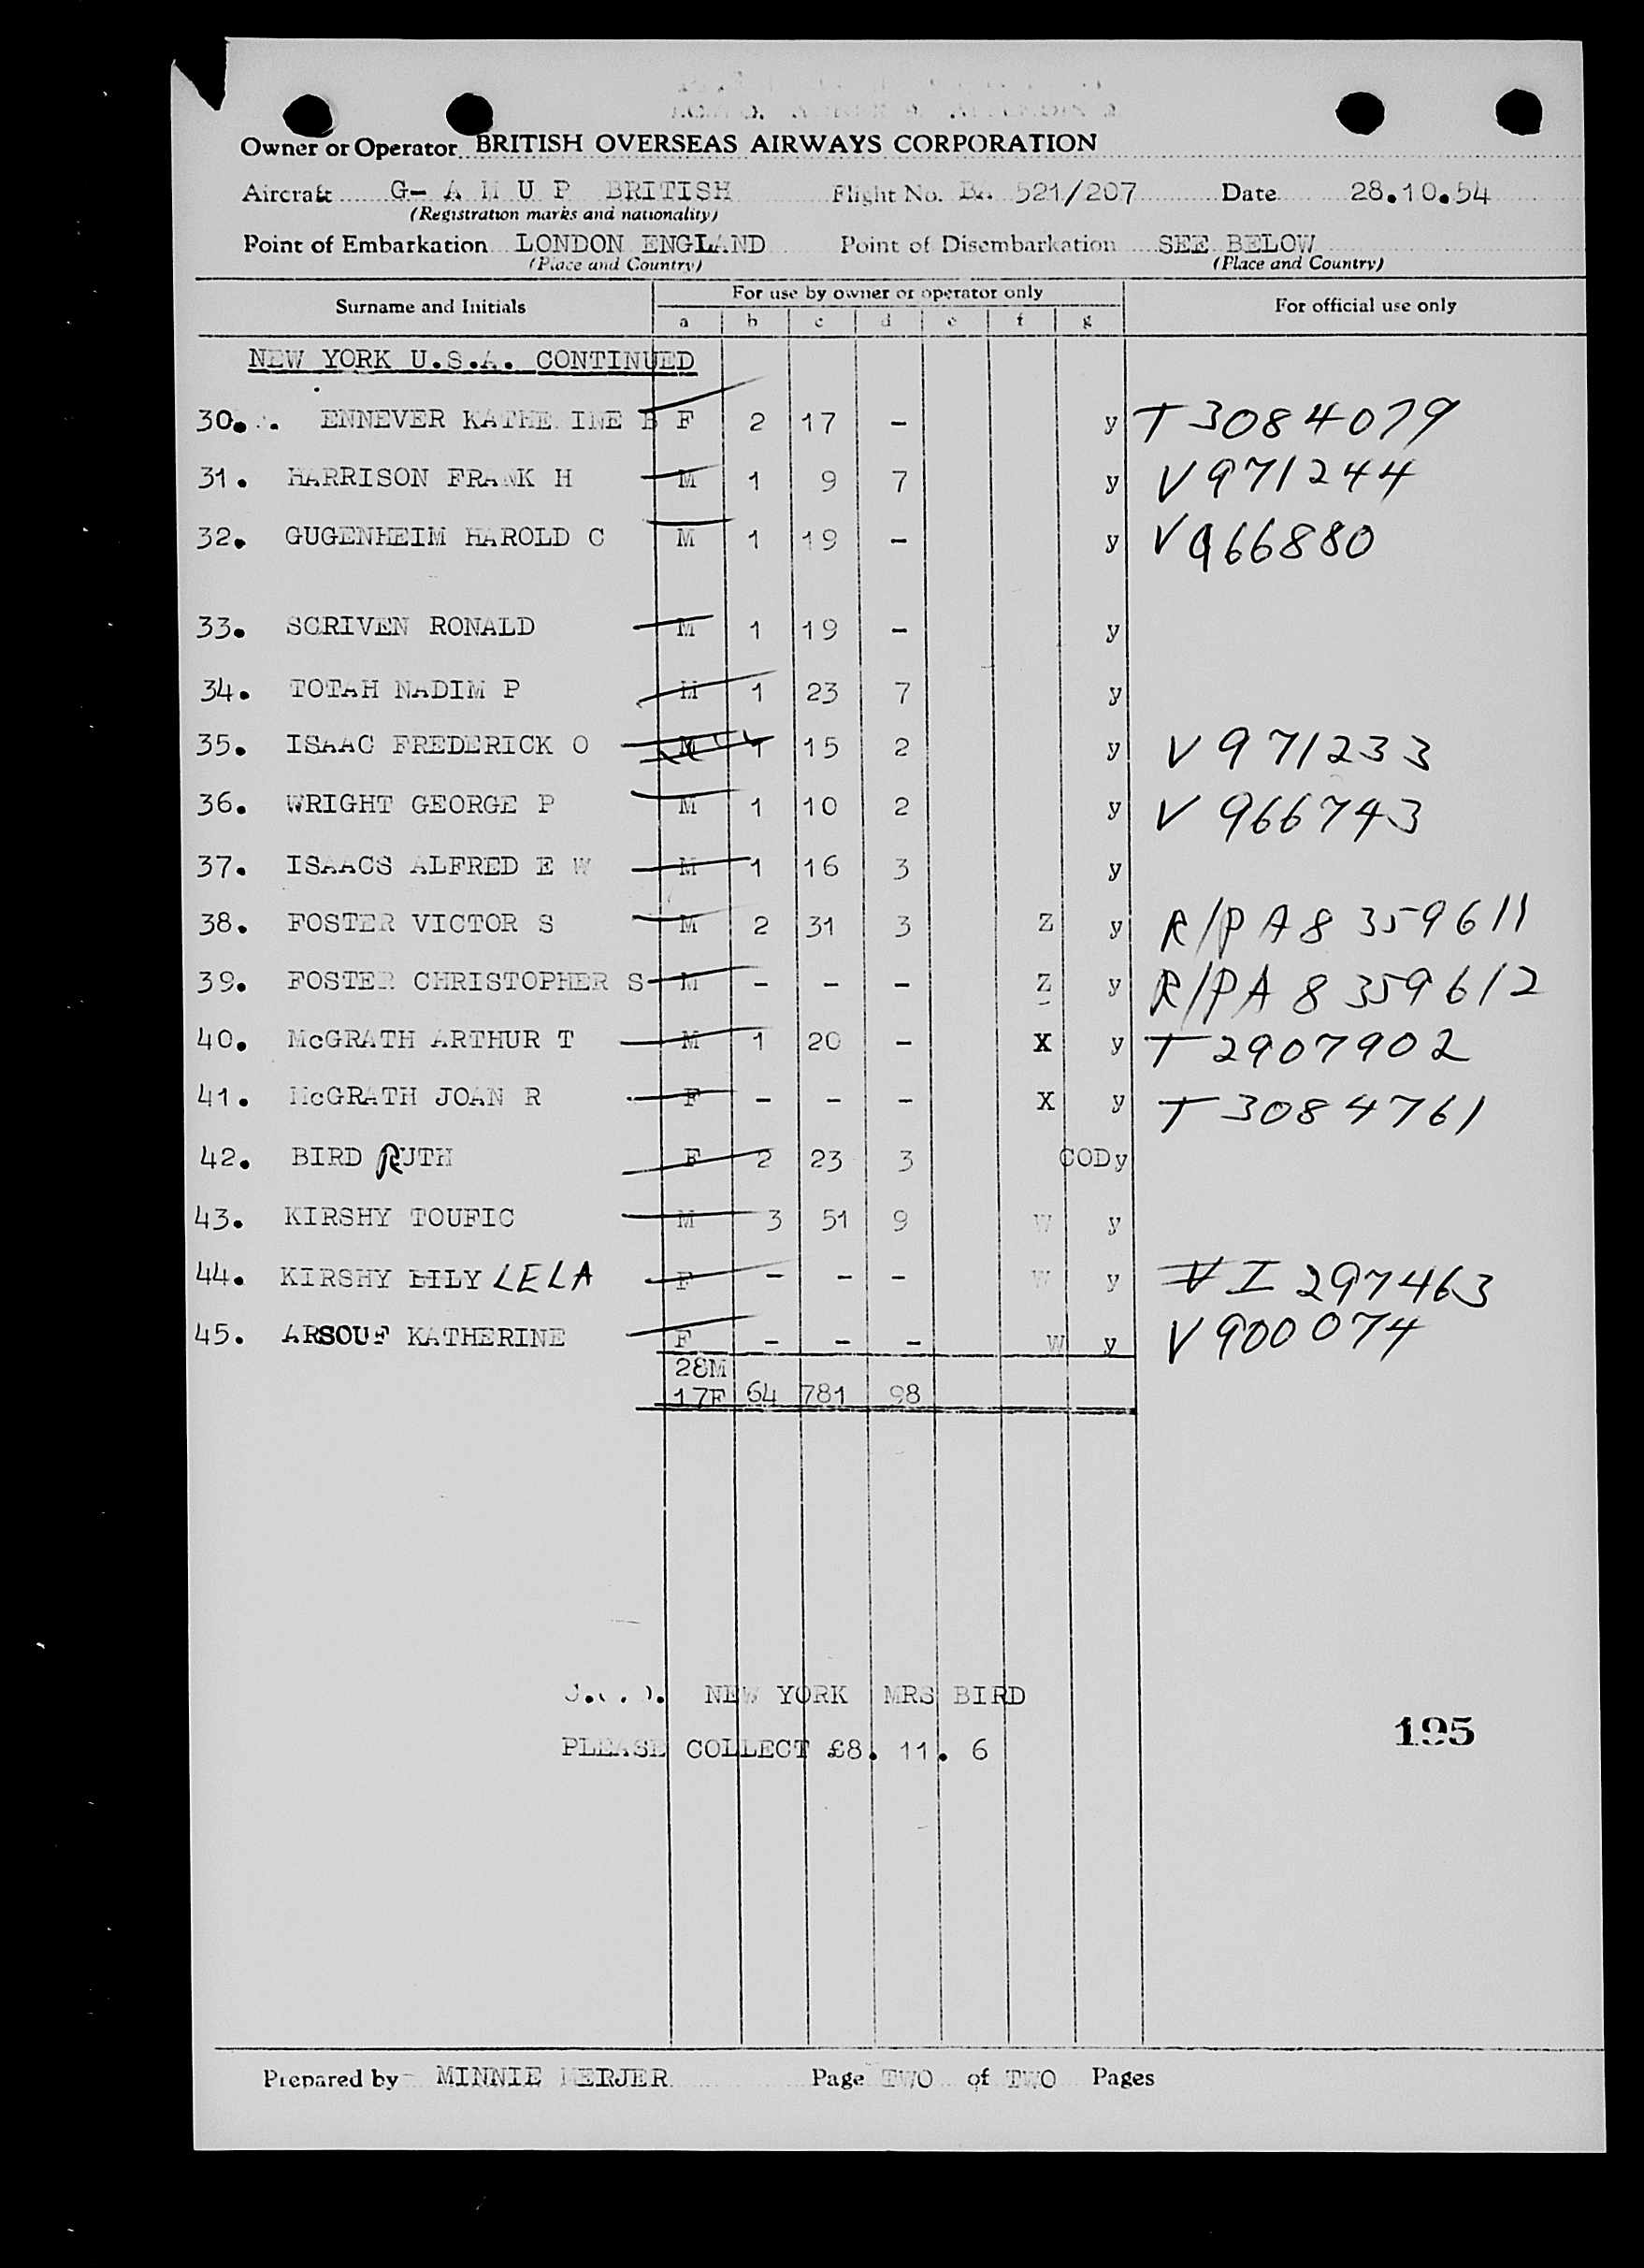 Owner or Operator BRITISH OVERSEAS AIRWAYS CORPORATION
Aircraft G- A H U P BRITISH Flight No. BA. 521/207 Date 28.10.54
(Registration marks and nationality)
Point of Embarkation LONDON ENGLAND Point of Disembarkation SEE BELOW
(Place and Country) (Place and Country)
Surname and Initials For use by owner or operator only For official use only
a b c d e f g
NEW YORK U.S.A. CONTINUED
30. ENNEVER KATHE INE B F 2 17 - y T 3084079
31. HARRISON FRANK H M 1 9 7 y V971244
32. GUGENHEIM HAROLD C M 1 19 - y V966880
33. SCRIVEN RONALD M 1 19 - y
34. TOTAH NADIM P M 1 23 7 y
35. ISAAC FREDERICK O M 1 15 2 y V971233
36. WRIGHT GEORGE P M 1 10 2 y V 966743
37. ISAACS ALFRED E W M 1 16 3 y
38. FOSTER VICTOR S M 2 31 3 Z y R/P A8 359611
39. FOSTER CHRISTOPHER S M - - - Z y R/P A 8 359612
40. McGRATH ARTHUR T M 1 20 - X y T 2907902
41. McGRATH JOAN R F - - - X y T 3084761
42. BIRD RUTH F 2 23 3 COD y
43. KIRSHY TOUFIC M 3 51 9 W y
44. KIRSHY LILY LELA F - - - W y V I 297463
45. ARSOUF KATHERINE F - - - W y V900074
28M
17F 64 781 98
NEW YORK MRS BIRD
PLEASE COLLECT £8. 11. 6
195
Prepared by MINNIE MERJER Page TWO of TWO Pages